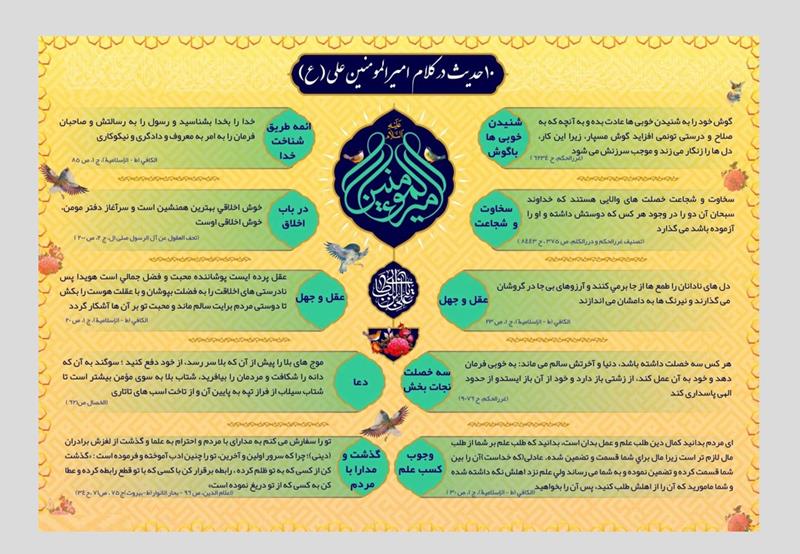 ۱۰ حدیث در کلام امیرالمومنین علی (ع)
شنیدن
خوبی ها
باگوش
گوش خود را به شنیدن خوبی ها عادت بده و به آنچه که به
صلاح و درستی تونمی افزاید گوش مسپار، زیرا این کار،
دل ها را زنگار می زند و موجب سرزنش می شود
(غررالحکم، ح ٦٢٣٤)
ائمه طریق
شناخت
خدا
خدا را بخدا بشناسید و رسول را به رسالتش و صاحبان
فرمان را به امر به معروف و دادگری و نیکوکاری
الکافي (ط - الإسلامیة)، ج ۱، ص ۸۵
علیه
السلام
امیرالمومنین
سخاوت
و شجاعت
سخاوت و شجاعت خصلت های والایی هستند که خداوند
سبحان آن دو را در وجود هر کس که دوستش داشته و او را
آزموده باشد می گذارد
(تصنیف غررالحکم و دررالکلم، ص ۳۷۵، ح ۸۴۴۳)
در باب
اخلاق
خوش اخلاقي بهترین همنشین است و سرآغاز دفتر مومن،
خوش اخلاقی اوست
(تحف العقول عن آل الرسول صلی ال، ج ۲، ص ۲۰۰)
عقل و جهل
دل های نادانان را طمع ها از جا برمي کنند و آرزوهای بی جا در گروشان
می گذارند و نیرنگ ها به دامشان می اندازند
الکافي (ط - الإسلامیة)، ج ۱، ص ۲۳
عقل و جهل
عقل پرده ایست پوشاننده محبت و فضل جمالي است هویدا پس
نادرستی های اخلاقت را به فضلت بپوشان و با عقلت هوست را بکش
تا دوستی مردم برایت سالم ماند و محبت تو بر آن ها آشکار گردد
الکافي (ط - الإسلامیة)، ج ۱، ص ۲۰
علی بن ابی طالب
سه خصلت
نجات بخش
هر کس سه خصلت داشته باشد، دنیا و آخرتش سالم می ماند: به خوبی فرمان
دهد و خود به آن عمل کند، از زشتی باز دارد و خود از آن باز ایستدو از حدود
الهی پاسداری کند
(غررالحکم، ح ۹۰۷۶)
دعا
موج های بلا را پیش از آن که بلا سر رسد، از خود دفع کنید ؛ سوگند به آن که
دانه را شکافت و مردمان را بیافرید، شتاب بلا به سوی مؤمن بیشتر است تا
شتاب سیلاب از فراز تپه به پایین آن و از تاخت اسب های تاتاری
(الخصال ص۶۲۱)
وجوب
کسب علم
ای مردم بدانید کمال دین طلب علم و عمل بدان است، بدانید که طلب علم بر شما از طلب
مال لازم تر است زیرا مال براي شما قسمت و تضمین شده. عادلی(که خداست) آن را بین
شما قسمت کرده و تضمین نموده و به شما می رساند ولی علم نزد اهلش نگه داشته شده
و شما مامورید که آن را از اهلش طلب کنید، پس آن را بخواهید
الکافي (ط - الإسلامیة)، ج ۱، ص ۳۰
گذشت و
مدارا با
مردم
تو را سفارش می کنم به مدارای با مردم و احترام به علما و گذشت از لغزش برادران
(دینی)؛ چرا که سرور اولین و آخرین، تو را چنین ادب آموخته و فرموده است : «گذشت
کن از کسی که به تو ظلم کرده ، رابطه برقرار کن با کسی که با تو قطع رابطه کرده و عطا
کن به کسی که از تو دریغ نموده است»
(اعلام الدین، ص ۹۶ - بحار الانوار(ط-بیروت) ج ۷۵ ، ص۷۱، ح ۳۴)